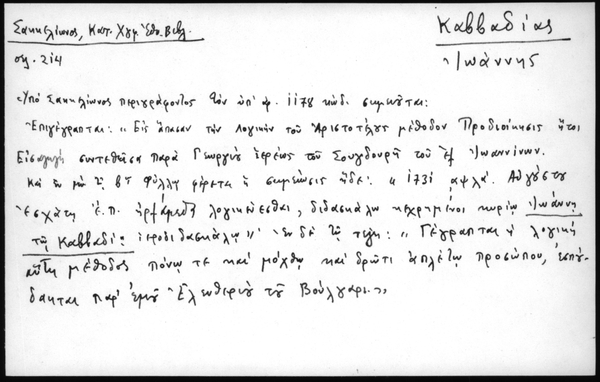 Σακκελίωνος, Κατ. Χγφ. Ἐθν. Βιβλ.
Καββαδίας
σελ. 214
Ἰωάννης
Ὑπό Σακκελίωνος περιγράφοντος τόν ὑπ' ἀρ. 1178 κώδ. σημειοῦται:
Ἐπιγέγραπται: "Εἰς ἅπασαν τήν λογικήν τοῦ Ἀριστοτέλους μέθοδον Προδιοίκησις ἤτοι
Εἰσαγωγή συντεθεῖσα παρά Γεωργίου ἱερέως τοῦ Σουγδουρῆ τοῦ ἐξ Ἰωαννίνων.
Καί ἐν μέν τῷ βῳ φύλλῳ φέρεται ἡ σημείωσις ἥδε: "1731 αψλα'. Αὐγούστου
ἐσχάτῃ Ἐ.Π. ἠρξάμεθα λογικεύεσθαι, διδασκάλῳ κεχρημένοι κυρίῳ Ἰωάννῃ
τῷ Καββαδίᾳ ἱεροδιδασκάλῳ"· ἐν δέ τῷ τέλει: "Γέγραπται ἡ λογική
αὕτη μέθοδος πόνῳ τε καί μόχθῳ καί ἱδρῶτι ἀπλέτῳ προσώπου, ἐσπού-
δασται παρ' ἐμοῦ Ἐλευθερίου τοῦ Βούλγαρι."